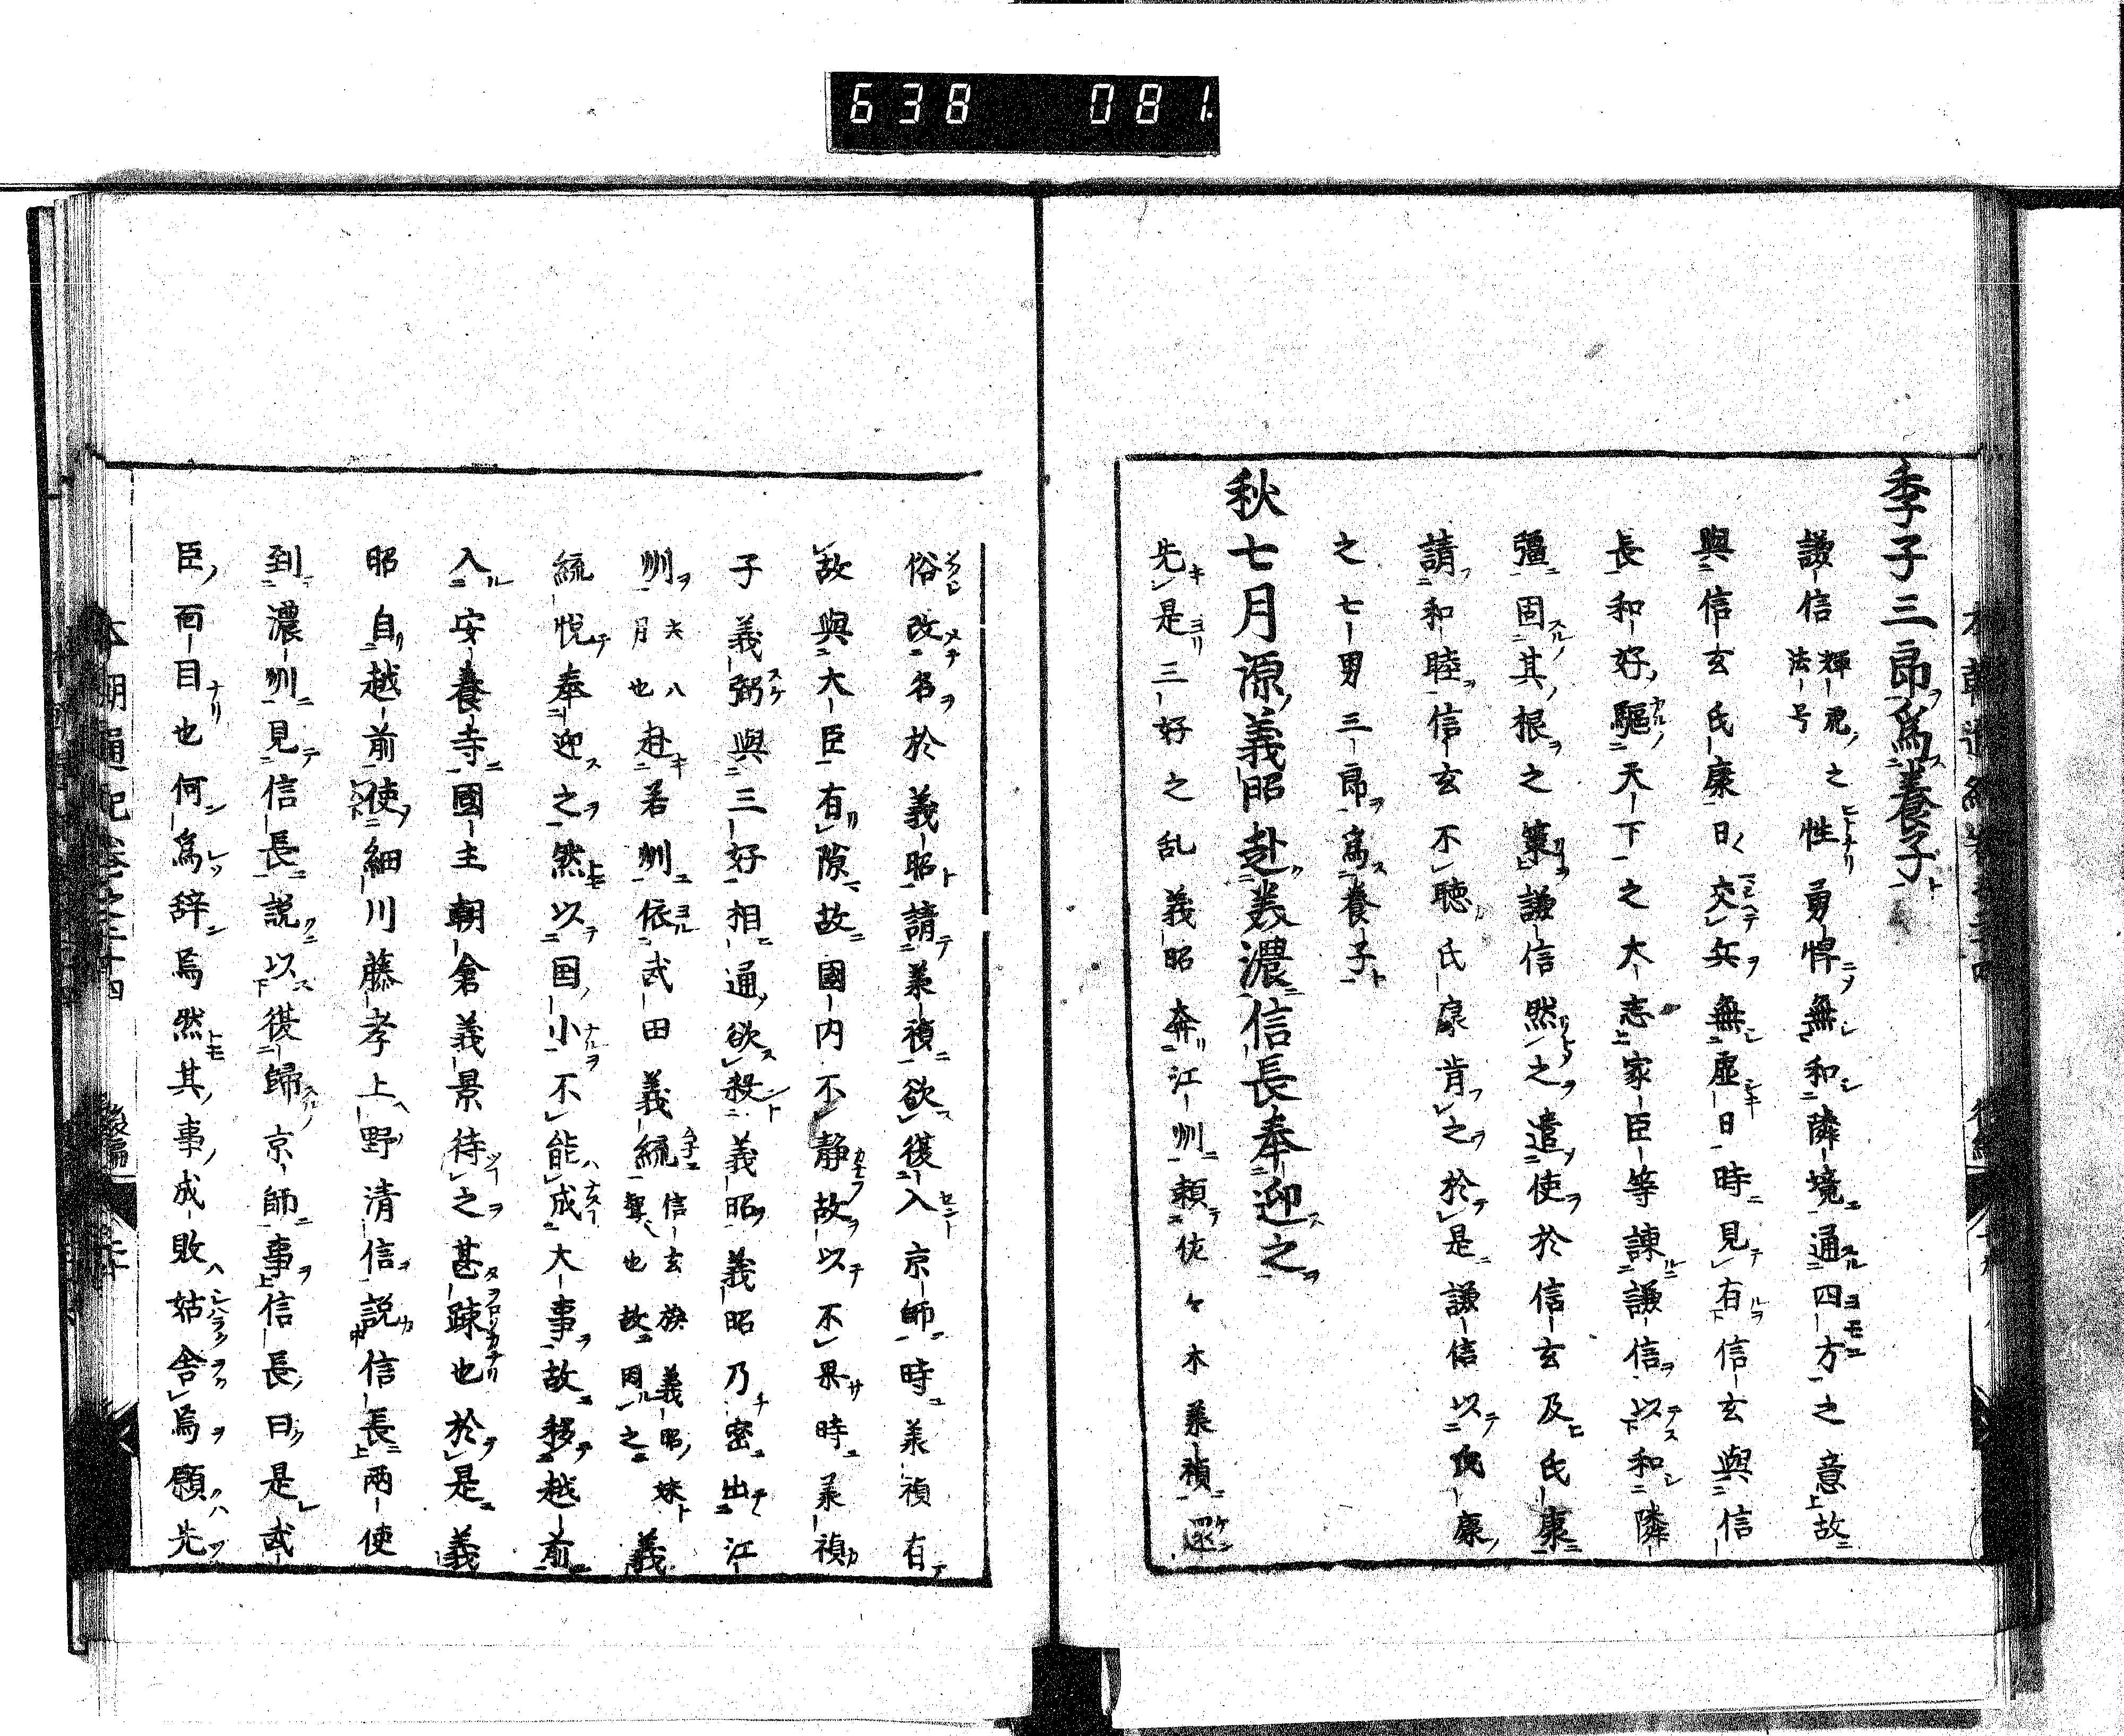 638 081
季子三郎爲養子
謙信輝虎法号之性勇悍無和隣境通四方之意故
與信玄氏康日交兵無虚日時見有信玄與信
長和好驅天下之大志家臣等諫謙信以和隣
彊固其根之策謙信然之遣使於信玄及氏康
請和睦信玄不聴氏康肯之於是謙信以氏康
之七男三郎爲養子
秋七月源義昭赴美濃信長奉迎之
先是三好之乱義昭奔江州頼佐々木義禎還
俗改名於義昭請義禎欲復入京師時義禎有
故與大臣有隙故國内不静故以不果時義禎
子義弼與三好相通欲殺義昭義昭乃密出江
州去八月也赴若州依武田義統信玄族義昭妹聟也故因之義
統悦奉迎之然以国小不能成大事故移越前
入安養寺國主朝倉義景待之甚疎也於是義
昭自越前使細川藤孝上野清信説信長両使
到濃州見信長説以復歸京師事信長曰是武
臣面目也何爲辞焉然其事成敗姑舎焉願先
本朝通紀巻之三十四 後編